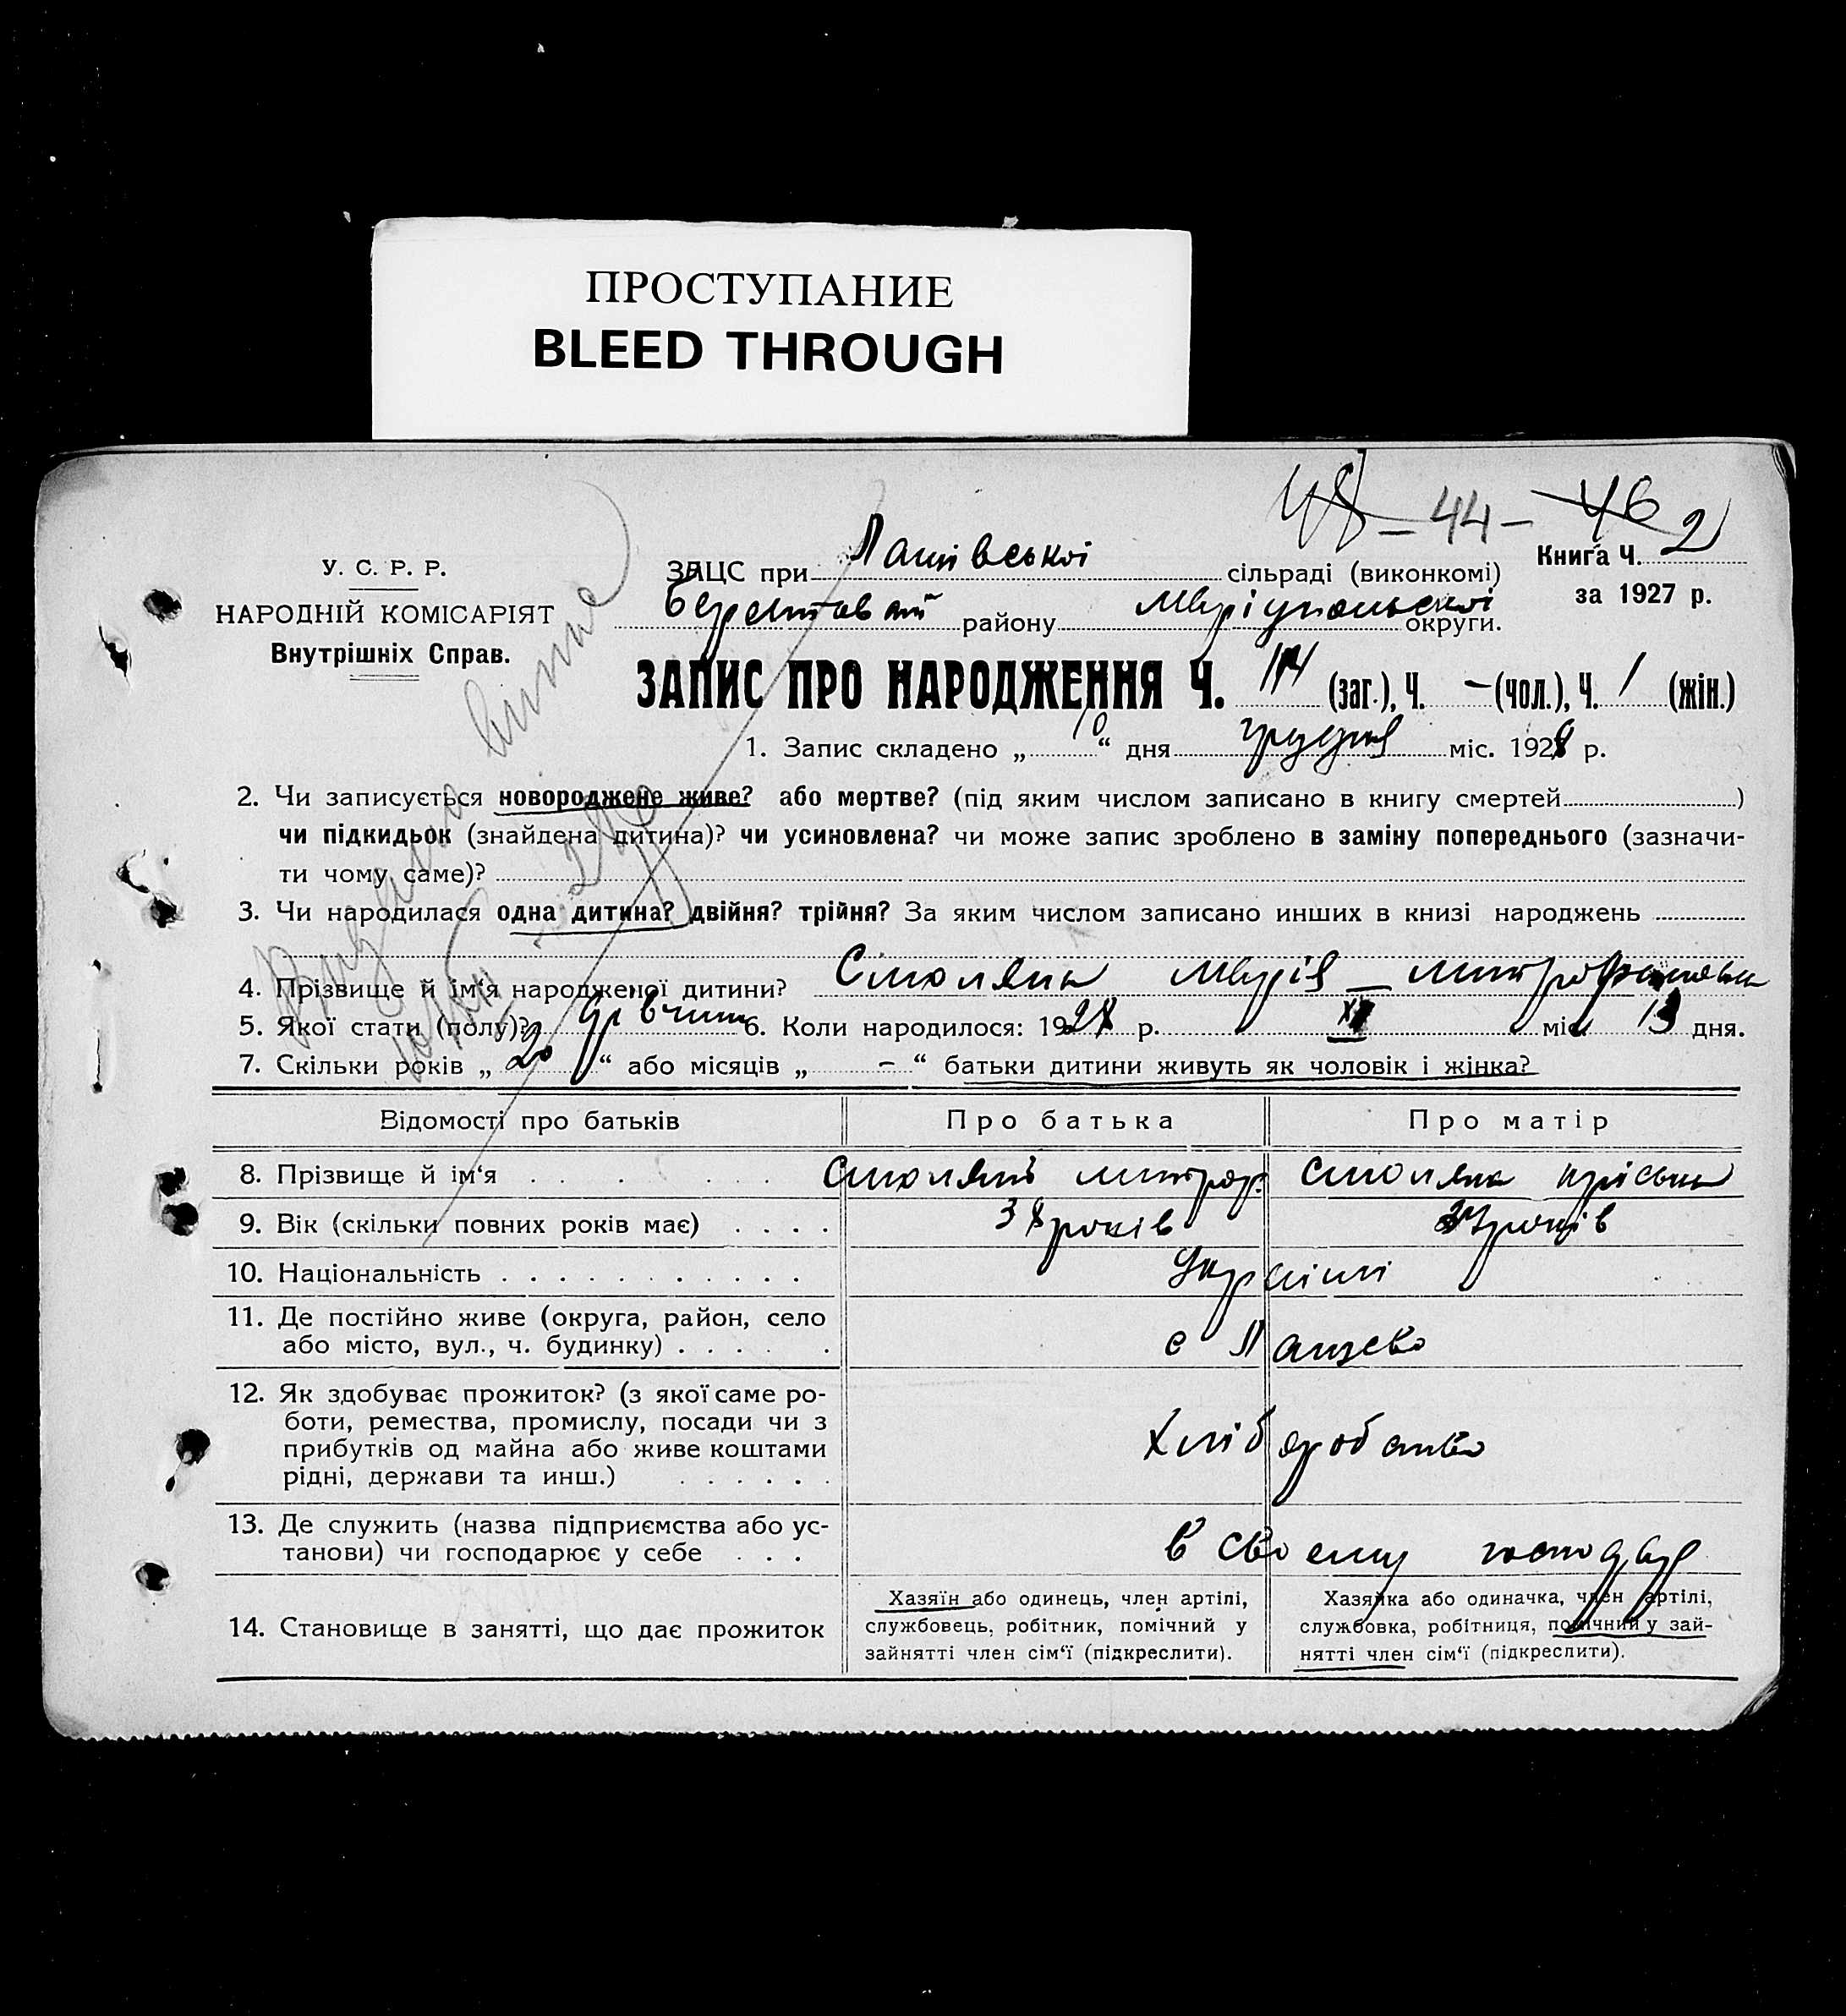 ПРОСТУПАНИЕ
BLEED THROUGH
48 – 44 – 46
У. С. Р. Р.
НАРОДНІЙ КОМІСАРІЯТ
Внутрішніх Справ.
ЗАЦС при сільраді (виконкомі)
Книга Ч. 2
за 1927 р.
району Маріупольської округи.
ЗАПИС ПРО НАРОДЖЕННЯ Ч. (заг.), Ч. – (чол.), Ч. 1 (жін.)
1. Запис складено „ 10 “ дня грудня міс. 1928 р.
2. Чи записується новороджене живе? або мертве? (під яким числом записано в книгу смертей )
чи підкидьок (знайдена дитина)? чи усиновлена? чи може запис зроблено в заміну попереднього (зазначи-
ти чому саме)?
3. Чи народилася одна дитина? двійня? трійня? За яким числом записано инших в книзі народжень
4. Прізвище й ім'я народженої дитини? Смоляна Марія Митрофановна
5. Якої стати (полу)? дівчина 6. Коли народилося: 1928 р. міс. дня.
7. Скільки років „ 20 “ або місяців „ – “ батьки дитини живуть як чоловік і жінка?
Відомості про батьків Про батька Про матір
8. Прізвище й ім'я Митроф. Смоляна
9. Вік (скільки повних років має) 38 років років
10. Національність Україні
11. Де постійно живе (округа, район, село
або місто, вул., ч. будинку) с
12. Як здобуває прожиток? (з якої саме ро-
боти, ремества, промислу, посади чи з
прибутків од майна або живе коштами
рідні, держави та инш.) Хліборобство
13. Де служить (назва підприємства або ус-
танови) чи господарює у себе в своему господар
14. Становище в занятті, що дає прожиток
Хазяїн або одинець, член артілі,
службовець, робітник, помічний у
зайнятті член сім'ї (підкреслити).
Хазяйка або одиначка, член артілі,
службовка, робітниця, помічний у зай-
нятті член сім'ї (підкреслити).